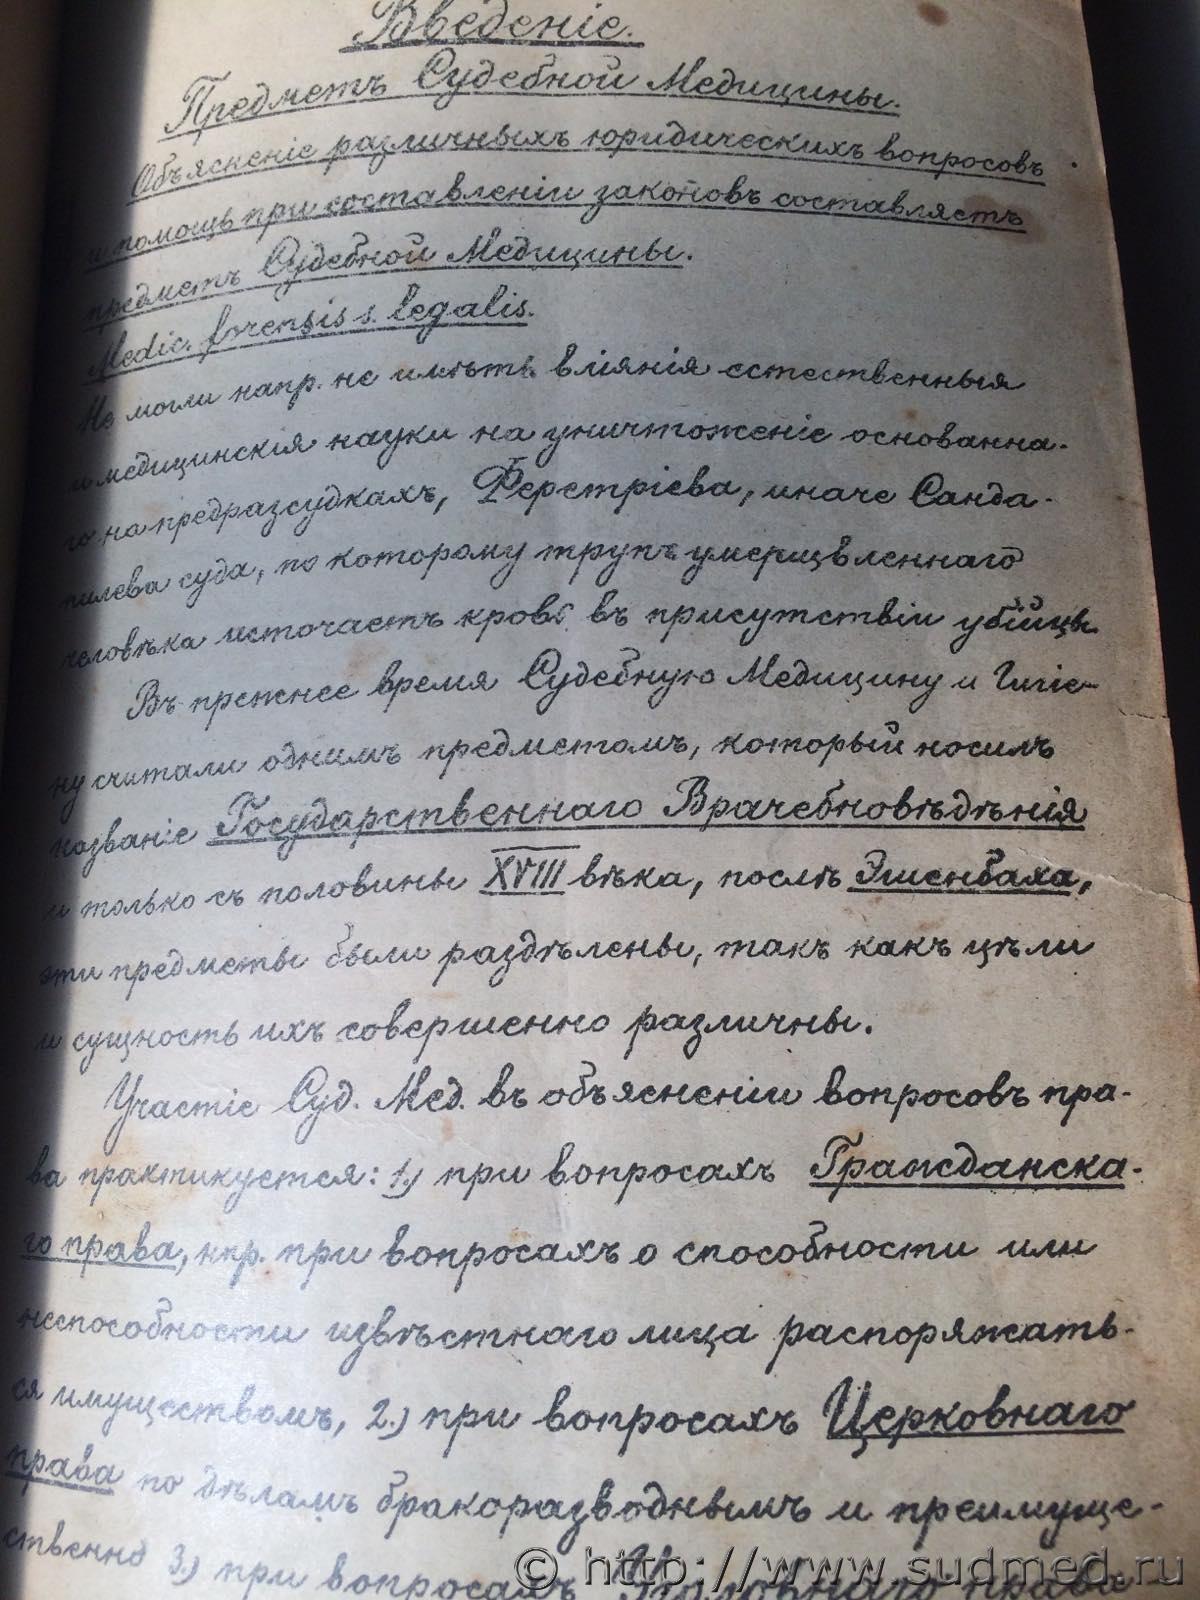 Введеніе.
Предметъ Судебной Медицины.
Объясненіе различныхъ юридическихъ вопросовъ
и помощь при составленіи законовъ составляетъ
предметъ Судебной Медицины.
Medic. forensis s. legalis.
Не могли напр. не имѣть вліянія естественныя
и медицинскія науки на уничтоженіе основанна-
го на предразсудкахъ, Феретріева, иначе Санда-
пилева суда, по которому трупъ умерщвленнаго
человѣка источаетъ кровь въ присутствіи убійцы
Въ прежнее время Судебную Медицину и Гигіе-
ну считали однимъ предметомъ, который носилъ
названіе Государственнаго Врачебновѣдѣнія
и только съ половины XVIII вѣка, послѣ Эшенбаха,
эти предметы были раздѣлены, такъ какъ цѣли
и сущность ихъ совершенно различны.
Участіе Суд. Мед. въ объясненіи вопросовъ пра-
ва практикуется: 1.) при вопросахъ Гражданска-
го права, нпр. при вопросахъ о способности или
неспособности извѣстнаго лица распоряжать-
ся имуществомъ, 2.) при вопросахъ Церковнаго
права по дѣламъ бракоразводнымъ и преимуще-
ственно 3.) при вопросахъ Уголовнаго права
© http://www.sudmed.ru